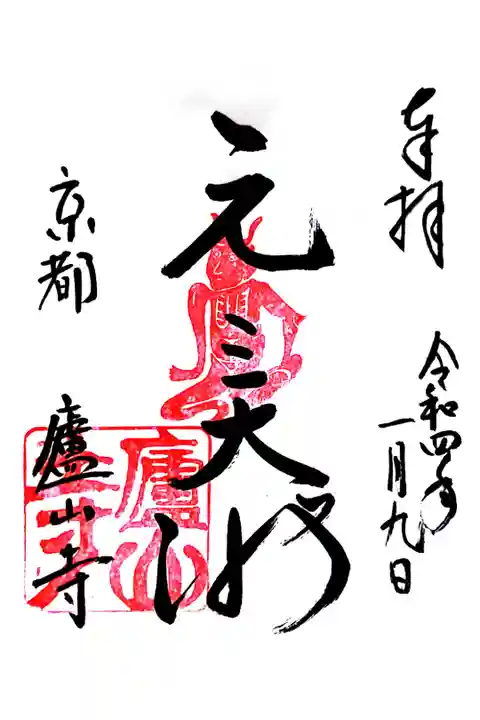 奉拝
令和四年
一月九日
元三大師
京都 廬山寺
廬山